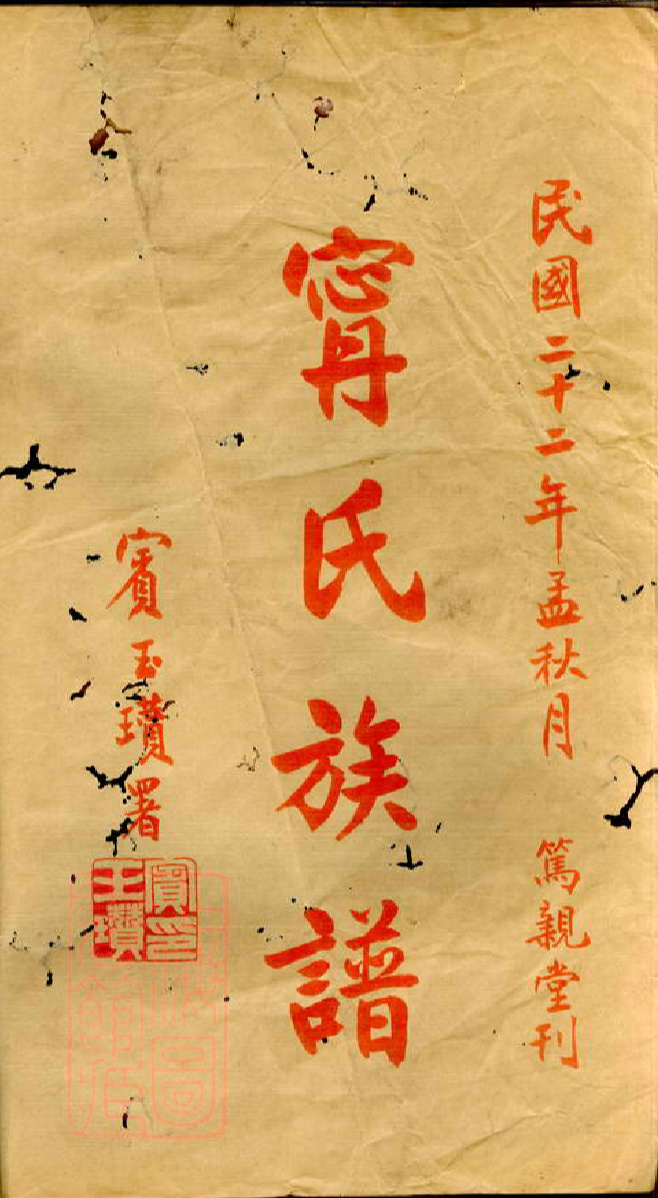 民國二十二年孟秋月 篤親堂刊
甯氏族譜
賓玉瓚署
賓印
玉瓚